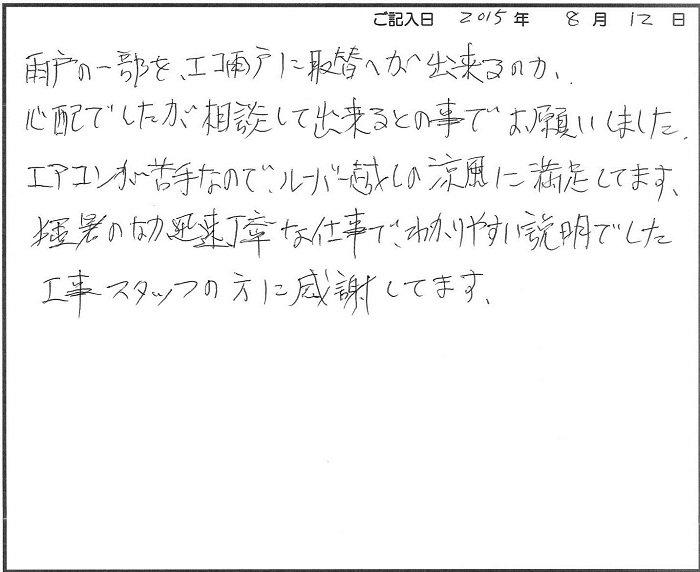 ご記入日 2015年 8月 12日
雨戸の一部を、エコ雨戸に取替へが出来るのか、
心配でしたが相談して出来るとの事でお願いしました。
エアコンが苦手なので、ルーバー越しの涼風に満足してます、
猛暑の中、迅速丁寧な仕事で、わかりやすい説明でした
工事スタッフの方に感謝してます、